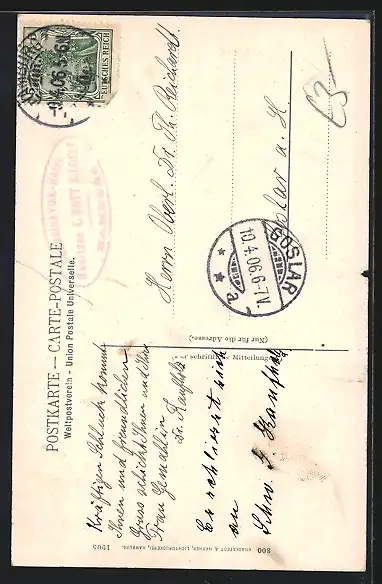 POSTKARTE — CARTE-POSTALE
Weltpostverein - Union Postale Universelle.
DEUTSCHES REICH
9.4.06
Herrn Oberl. Dr. Th. Reichardt
Goslar a. H.
GOSLAR
10.4.06.6-7V.
a
(Nur für die Adresse.)
schriftliche Mitteilungen
Kräftigen Schluck kommt
Ihnen und freundlichen
Gruss schickt Ihnen und Ihrer
Frau Gemahlin
Dr. Kauffholz
Es schliesst sich
an
800 KNACKSTEDT & NÄTHER, LICHTDRUCKEREI, HAMBURG. 1905